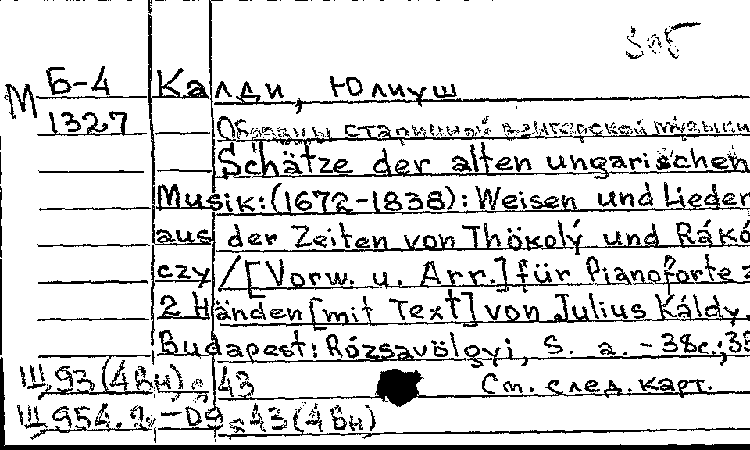 М Б-4 Калди, Юлиуш
1327 Образцы старинной венгерской музыки
Schätze der alten ungarischen
Musik: (1672-1838): Weisen und Lieder
aus der Zeiten von Thököly und Rákó
czy / [Vorw. u. Arr.] für Pianoforte z
2 Händen [mit Text] von Julius Káldy.
Budapest: Rózsavölgyi, S. a. - 38c.; 35
Щ93(4Вн) 43 См. след. карт.
Щ954.2 43(4Вн)